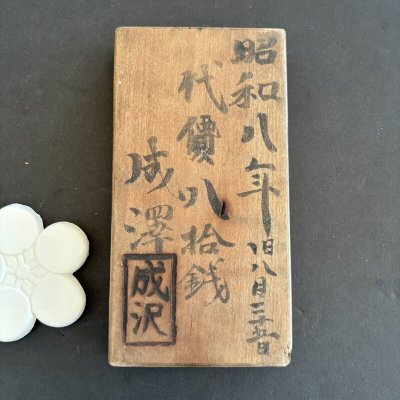 昭和八年旧八月二十五日
代價八拾銭
成澤
成沢